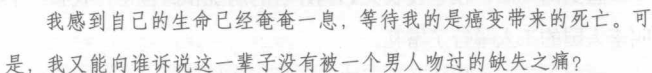 我感到自己的生命已经奄奄一息，等待我的是癌变带来的死亡。可
是，我又能向谁诉说这一辈子没有被一个男人吻过的缺失之痛？